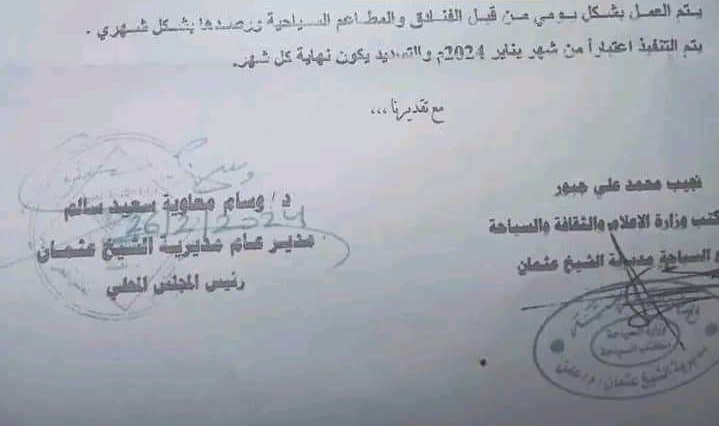 يتم العمل بشكل يومي من قبل الفنادق والمطاعم السياحية ورصدها بشكل شهري .
يتم التنفيذ اعتباراً من شهر يناير 2024م والتسديد يكون نهاية كل شهر.
مع تقديرنا ,,,
نجيب محمد علي جبور
كتب وزارة الاعلام والثقافة والسياحة
ع السياحة مديرية الشيخ عثمان
وزارة السياحة
مكتب السياحة
مديرية الشيخ عثمان م/عدن
د/ وسام معاوية سعيد سالم
26/2/2024
مدير عام مديرية الشيخ عثمان
رئيس المجلس المحلي